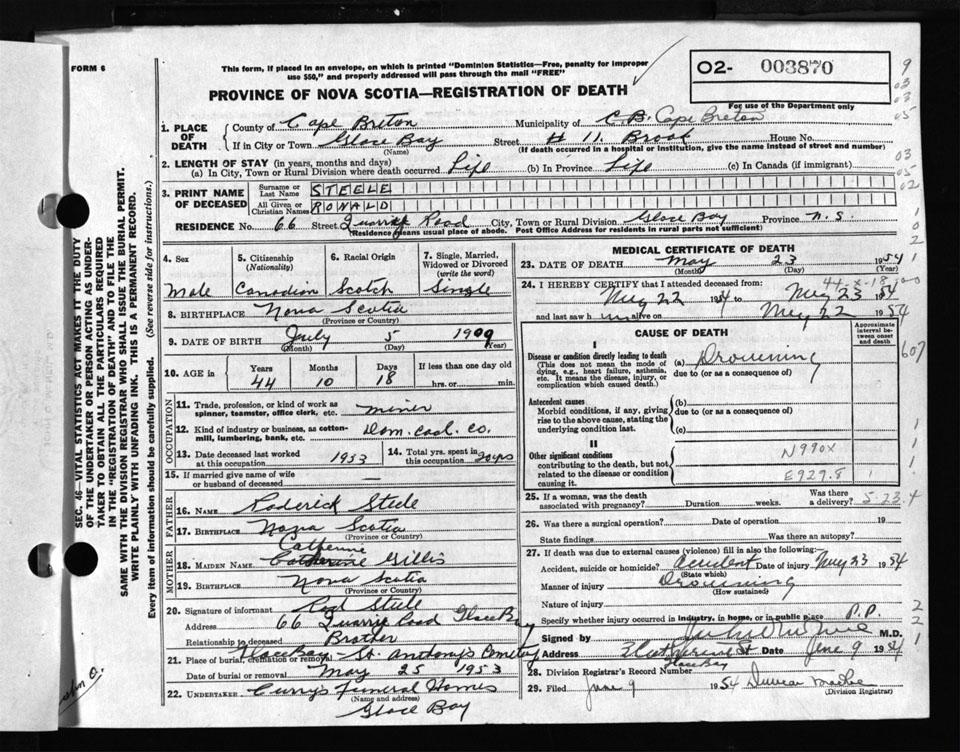 FORM 6
This form, if placed in an envelope, on which is printed "Dominion Statistics—Free, penalty for improper
use $50," and properly addressed will pass through the mail "FREE"
02- 003870
For use of the Department only
PROVINCE OF NOVA SCOTIA—REGISTRATION OF DEATH
1. PLACE OF DEATH
County of Cape Breton Municipality of C.B. Cape Breton
If in City or Town Glace Bay Street # 11. Brook House No.
(Name) (If death occurred in a hospital or institution, give the name instead of street and number)
2. LENGTH OF STAY (in years, months and days)
(a) In City, Town or Rural Division where death occurred Life (b) In Province Life (c) In Canada (if immigrant)
3. PRINT NAME OF DECEASED
Surname or Last Name STEELE
All Given or Christian Names RONALD
RESIDENCE No. 66 Street Quarry Road City, Town or Rural Division Glace Bay Province N.S.
(Residence means usual place of abode. Post Office Address for residents in rural parts not sufficient)
4. Sex
Male
5. Citizenship
(Nationality)
Canadian
6. Racial Origin
Scotch
7. Single, Married,
Widowed or Divorced
(write the word)
Single
8. BIRTHPLACE Nova Scotia
(Province or Country)
9. DATE OF BIRTH July 5 1909
(Month) (Day) (Year)
10. AGE in
Years Months Days If less than one day old
44 10 18 hrs. or min.
OCCUPATION
11. Trade, profession, or kind of work as
spinner, teamster, office clerk, etc. miner
12. Kind of industry or business, as cotton-
mill, lumbering, bank, etc. Dom. Coal. Co.
13. Date deceased last worked
at this occupation 1953
14. Total yrs. spent in
this occupation 20 yrs
15. If married give name of wife
or husband of deceased —
FATHER
16. NAME Roderick Steele
17. BIRTHPLACE Nova Scotia
(Province or Country)
MOTHER
Catherine
18. MAIDEN NAME Catherine Gillis
19. BIRTHPLACE Nova Scotia
(Province or Country)
20. Signature of informant Rod Steele
Address 66 Quarry Road Glace Bay
Relationship to deceased Brother
Glace Bay - St. Anthony's Cemetery
21. Place of burial, cremation or removal
Date of burial or removal May 25 1953
22. UNDERTAKER Curry's Funeral Homes
(Name and address)
Glace Bay
MEDICAL CERTIFICATE OF DEATH
23. DATE OF DEATH May 23 1954
(Month) (Day) (Year)
24. I HEREBY CERTIFY that I attended deceased from
May 22 1954 to May 23 1954
and last saw h im alive on May 22 1954
CAUSE OF DEATH
Approximate interval between onset and death
I
Disease or condition directly leading to death (a) Drowning
(This does not mean the mode of
dying, e.g., heart failure, asthenia,
etc. It means the disease, injury, or
complication which caused death.)
due to (or as a consequence of)
Antecedent causes (b)
Morbid conditions, if any, giving
rise to the above cause, stating the
underlying condition last.
due to (or as a consequence of)
(c)
II
Other significant conditions
contributing to the death, but not
related to the disease or condition
causing it.
N990X
E929.8
607
25. If a woman, was the death
associated with pregnancy? Duration weeks. Was there
a delivery?
26. Was there a surgical operation? Date of operation 19
State findings Was there an autopsy?
27. If death was due to external causes (violence) fill in also the following:
Accident, suicide or homicide? Accident Date of injury May 23 1954
(State which)
Manner of injury Drowning
(How sustained)
Nature of injury
Specify whether injury occurred in industry, in home, or in public place P.P.
Signed by M.D.
Address Catherine St. Date June 9 1954
Glace Bay
28. Division Registrar's Record Number
29. Filed June 9 1954 Duncan
(Division Registrar)
SEC. 46—VITAL STATISTICS ACT MAKES IT THE DUTY
OF THE UNDERTAKER OR PERSON ACTING AS UNDER-
TAKER TO OBTAIN ALL THE PARTICULARS REQUIRED
IN THE "REGISTRATION OF DEATH" AND TO FILE THE
SAME WITH THE DIVISION REGISTRAR WHO SHALL ISSUE THE BURIAL PERMIT.
WRITE PLAINLY WITH UNFADING INK. THIS IS A PERMANENT RECORD.
Every item of information should be carefully supplied. (See reverse side for instructions.)